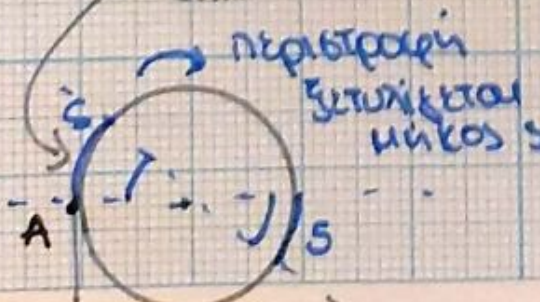 περιστροφή
ξετυλίγεται
μήκος S
S
A
S